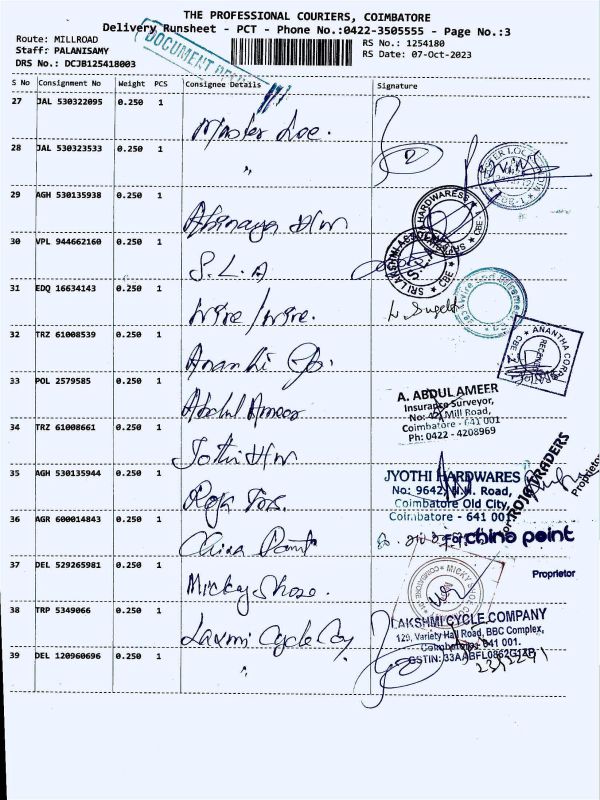 THE PROFESSIONAL COURIERS, COIMBATORE
Delivery Runsheet - PCT - Phone No.:0422-3505555 - Page No.:3
Route: MILLROAD
Staff: PALANISAMY
DRS No.: DCJB125418003
RS No.: 1254180
RS Date: 07-Oct-2023
DOCUMENT
S No Consignment No Weight PCS Consignee Details Signature
27 JAL 530322095 0.250 1 Master Loc.
28 JAL 530323533 0.250 1 "
29 AGH 530135938 0.250 1 Abinaya H/W
30 VPL 944662160 0.250 1 S.L.A
31 EDQ 16634143 0.250 1 Wire / Wire.
32 TRZ 61008539 0.250 1
33 POL 2579585 0.250 1 Abdul Ameer
34 TRZ 61008661 0.250 1 Jothi H/W
35 AGH 530135944 0.250 1 Roja
36 AGR 600014843 0.250 1 China Point
37 DEL 529265981 0.250 1 Micky Shoe.
38 TRP 5349066 0.250 1 Laxmi Cycle Coy
39 DEL 120960696 0.250 1 "
HARDWARES
CBE
SRI LAKSHMI
CBE
ANANTHA CORPORATION
CBE
A. ABDUL AMEER
Insurance Surveyor,
Mill Road,
Coimbatore - 641 001
Ph: 0422 - 4208969
JYOTHI HARDWARES
No: 9642, N.H. Road,
Coimbatore Old City,
Coimbatore - 641 001
For ROJA TRADERS
Proprietor
For china point
Proprietor
MICKY SHOE
COIMBATORE
LAKSHMI CYCLE COMPANY
129, Variety Hall Road, BBC Complex,
Coimbatore - 641 001.
GSTIN: 33AABFL0862G1ZB